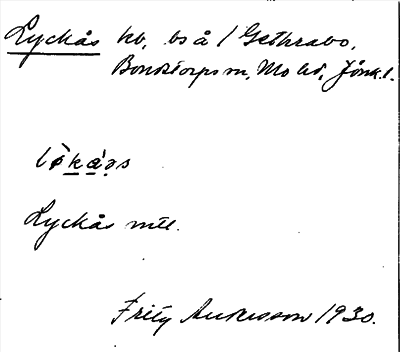 Lyckås hb, bs å 1 Gethrabo,
Bondstorps sn, Mo hd, Jönk. l.
lo᷅kǻǝs
Lyckås mtl.
Fritz Andersson 1930.